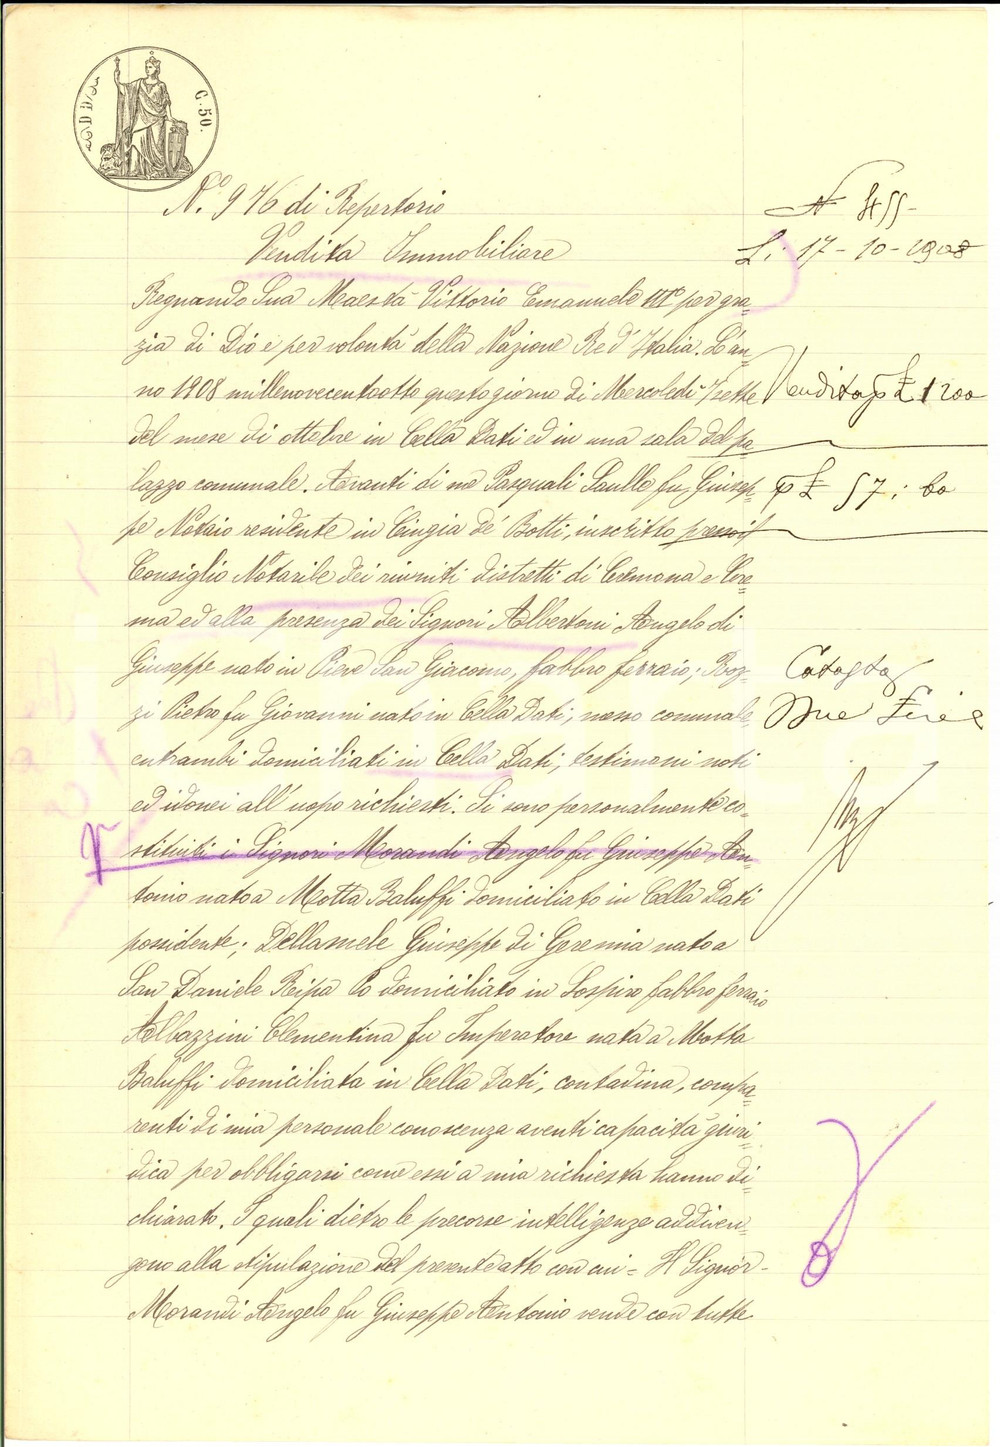 C. 50.
N.° 976 di Repertorio
Vendita Immobiliare
Regnando Sua Maestà Vittorio Emanuele III° per gra-
zia di Dio e per volontà della Nazione Re d'Italia. L'an-
no 1908 millenovecentootto questo giorno di Mercoledì sette
del mese di ottobre in Cella Dati ed in una sala del pa-
lazzo comunale. Avanti di me Pasquali Saulle fu Giusep-
pe Notaio residente in Cingia de' Botti, inscritto presso il
Consiglio Notarile dei riuniti distretti di Cremona e Cre-
ma ed alla presenza dei Signori Albertoni Angelo di
Giuseppe nato in Pieve San Giacomo, fabbro ferraio; Roz-
zi Pietro fu Giovanni nato in Cella Dati, messo comunale
entrambi domiciliati in Cella Dati, testimoni noti
ed idonei all'uopo richiesti. Si sono personalmente co-
stituiti i Signori Morandi Angelo fu Giuseppe An-
tonio nato a Motta Baluffi domiciliato in Cella Dati
possidente; Dellamele Giuseppe di Geremia nato a
San Daniele Ripa Po domiciliato in Sospiro fabbro ferraio
Albazzini Clementina fu Imperatore nata a Motta
Baluffi domiciliata in Cella Dati, contadina, compa-
renti di mia personale conoscenza aventi capacità giuri-
dica per obbligarsi come essi a mia richiesta hanno di-
chiarato. I quali dietro le precorse intelligenze addiven-
gono alla stipulazione del presente atto con cui = Il Signor
Morandi Angelo fu Giuseppe Antonio vende con tutte
N
L. 17-10-1908
Vendita p £ 1200
p £ 57: 60
Catasto
Due Lire